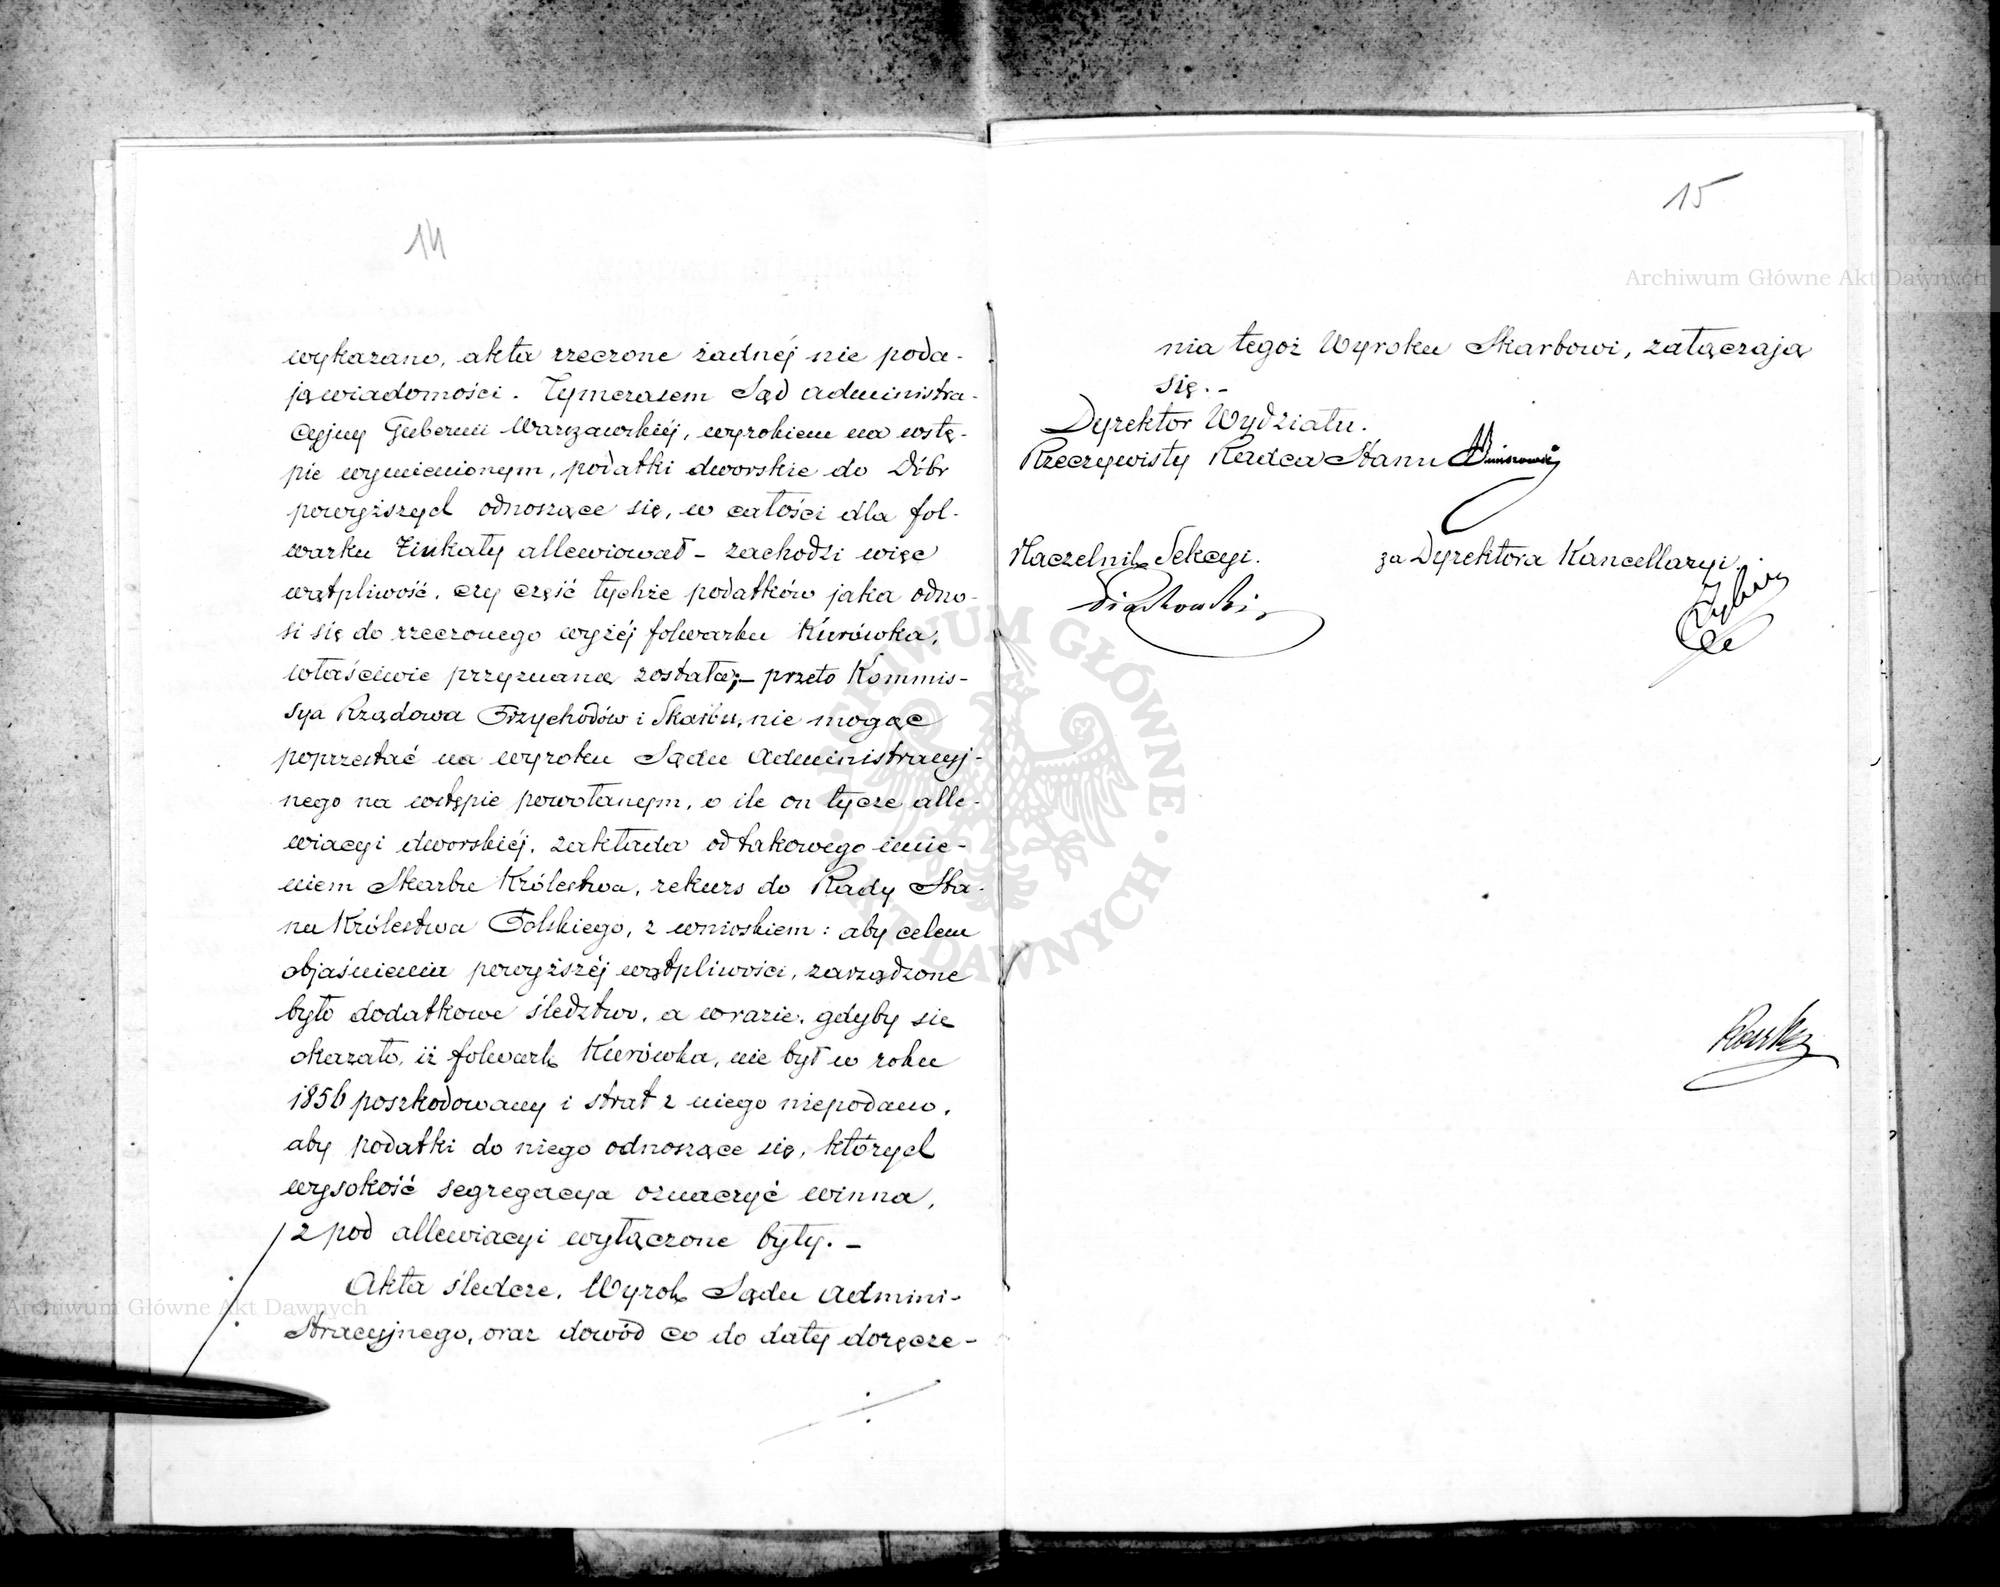 14
wykazano, akta rzeczone żadnéj nie poda-
ją wiadomości. Tymczasem Sąd Administra-
cyjny Gubernii Warszawskiéj, wyrokiem na wstę-
pie wymienionym, podatki dworskie do Dóbr
powyższych odnoszące się, w całości dla fol-
warku Zinkały allewiował – zachodzi więc
wątpliwość, czy część tychże podatków jaka odno-
si się do rzeczonego wyżéj folwarku Kurówka,
właściwie przyznaną została; – przeto Kommis-
sya Rządowa Przychodów i Skarbu, nie mogąc
poprzestać na wyroku Sądu Administracyj-
nego na wstępie powołanym, o ile on tycze alle-
wiacyi dworskiéj, zakłada od takowego imie-
niem Skarbu Królestwa, rekurs do Rady Sta-
nu Królestwa Polskiego, z wnioskiem: aby celem
objaśnienia powyższéj wątpliwości, zarządzone
było dodatkowe śledztwo, a w razie, gdyby się
okazało, iż folwark Kurówka, nie był w roku
1856 poszkodowany i strat z niego niepodano,
aby podatki do niego odnoszące się, których
wysokość segregacya oznaczyć winna,
z pod allewiacyi wyłączone były. –
Akta śledcze, Wyrok Sądu Admini-
stracyjnego, oraz dowód co do daty doręcze-
15
nia tegoż Wyroku Skarbowi, załączają
się. –
Dyrektor Wydziału.
Rzeczywisty Radca Stanu
Naczelnik Sekcyi.
Piaskowski
za Dyrektora Kancellaryi.
Archiwum Główne Akt Dawnych
Archiwum Główne Akt Dawnych
ARCHIWUM GŁÓWNE · AKT DAWNYCH ·